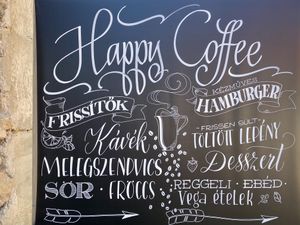 Happy Coffee
FRISSÍTŐK
KÉZMŰVES
HAMBURGER
Kávék
FRISSEN SÜLT
TÖLTÖTT LEPÉNY
MELEGSZENDVICS
Desszert
SÖR · FRÖCCS
REGGELI · EBÉD ·
Vega ételek